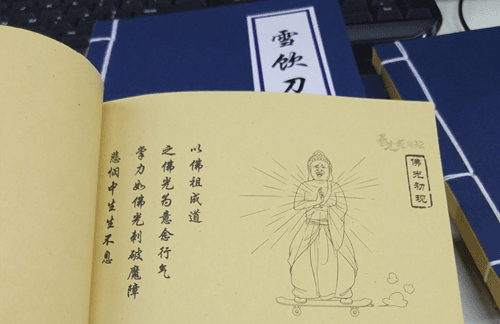 雪饮刀
佛光初现
以佛祖成道
之佛光为意念行气
掌力如佛光刺破魔障
悲悯中生生不息